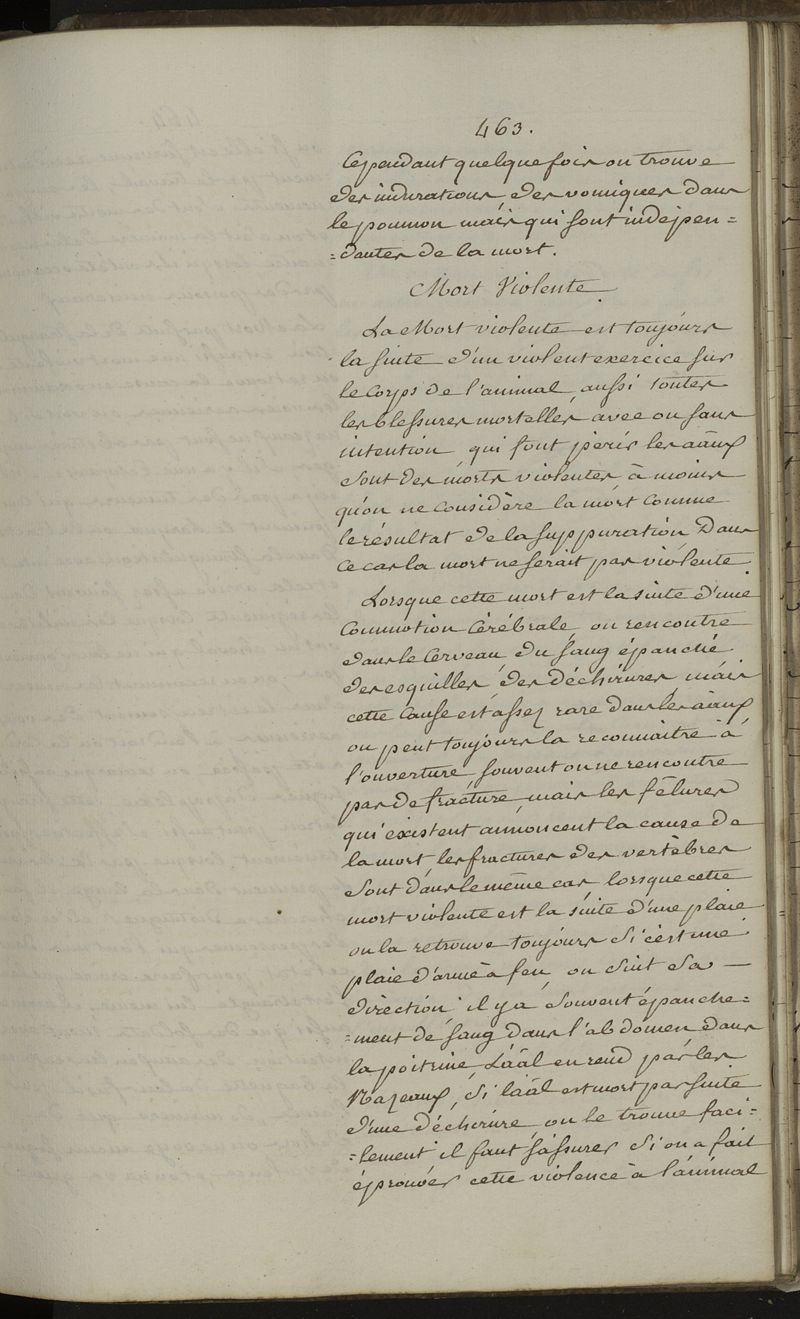 463.
Cependant quelque fois on trouve
des indurations, des vomiques dans
le poumon mais qui sont indépen=
=dantes de la mort.
Mort Violente.
La Mort violente est toujours
la suite d'un violent exercice sur
le Corps de l'animal, aussi toutes
les blessures mortelles, avec ou sans
intention, qui font périr les aâux
sont des morts violentes, à moins
qu'on ne considère la mort comme
le résultat de la suppuration Dans
ce cas la mort ne serait pas violente.
Lorsque cette mort est la suite d'une
Commotion Cérébrale, on rencontre
dans le Cerveau du sang épanché
des esquilles, des déchirures, mais
cette Cause est assez rare dans les aâux
on peut toujours la reconnaitre à
l'ouverture, souvent on ne rencontre
pas de fracture, mais les fêlures
qui existent annoncent la cause de
la mort, les fractures des vertèbres
sont dans le même cas, lorsque cette
mort violente est la suite d'une plaie
on la retrouve toujours Si c'est une
plaie d'arme à feu, on suit sa —
direction il y a souvent épanche=
=ment de sang dans l'abdomen dans
la poitrine L'aâl en rend par les
Nazeaux, Si l'aâl est mort par suite
d'une déchirure, on le trouve faci=
=lement il faut s'assurer Si on a fait
éprouver cette violence à l'animal